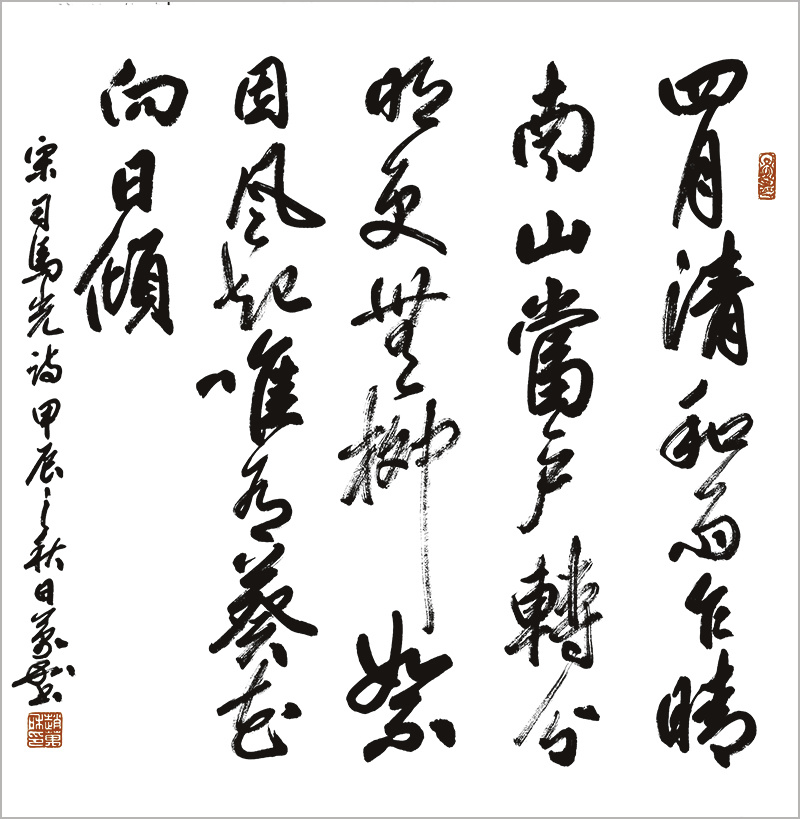 四月清和雨乍晴
南山當户轉分
明更無柳絮
因風起唯有葵花
向日傾
宋司馬光詩甲辰之秋日